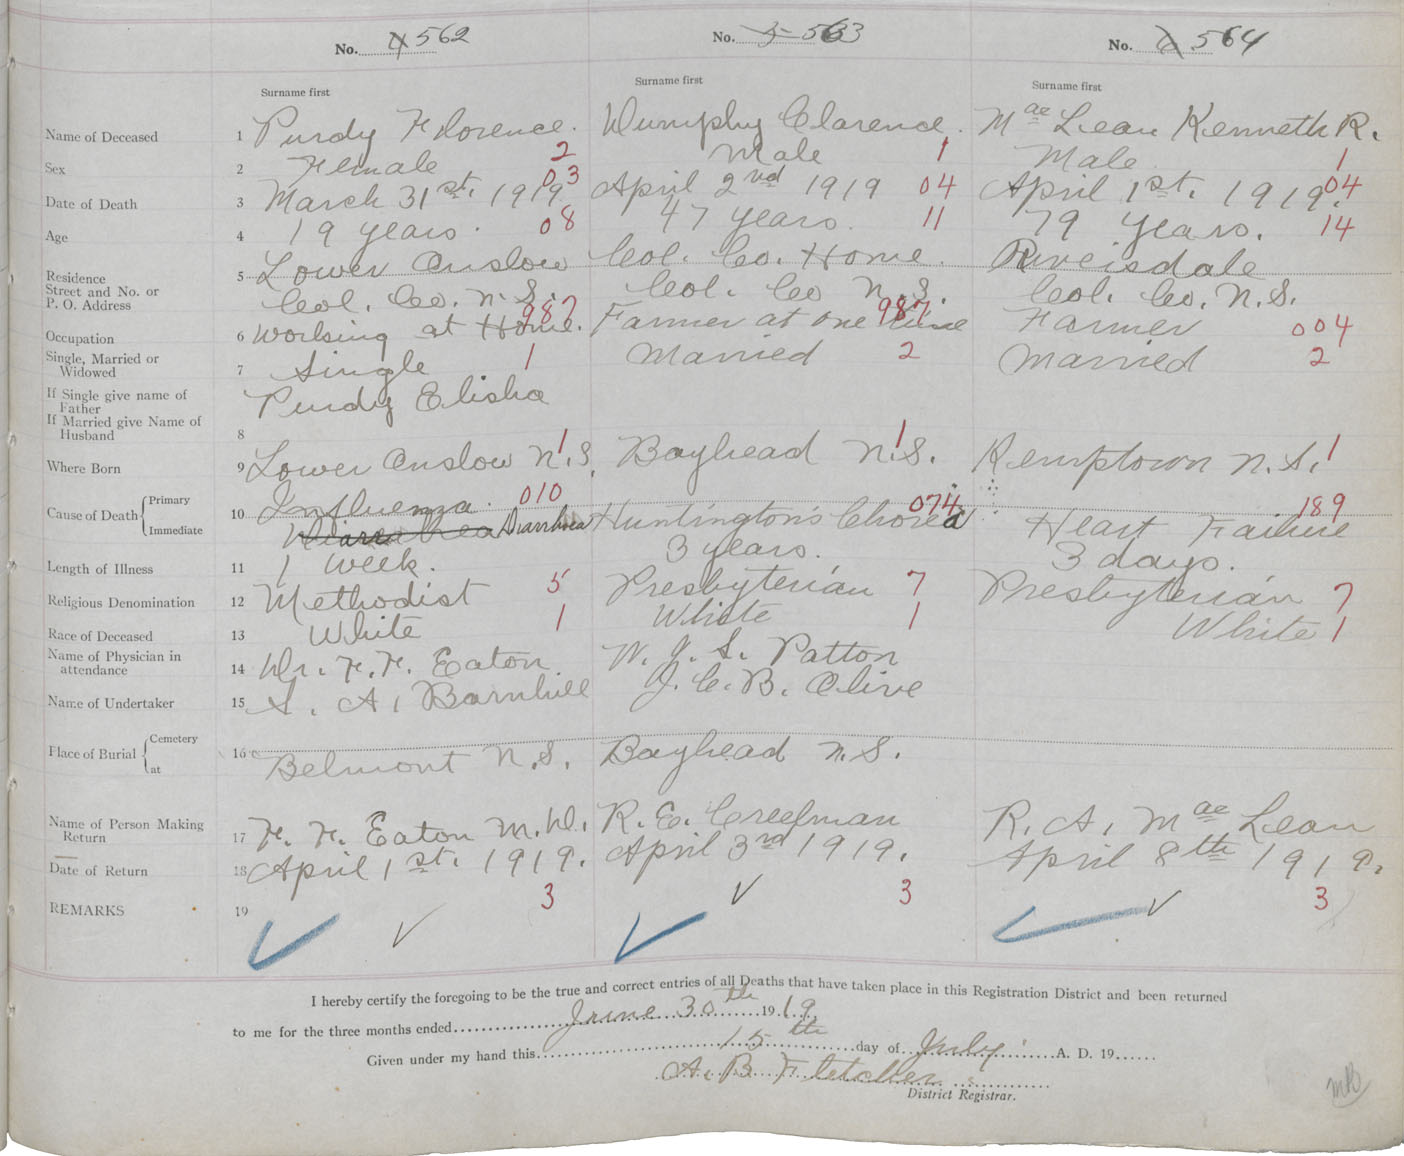 No. 4 562 No. 5 563 No. 6 564
Surname first Surname first Surname first
Name of Deceased 1 Purdy Florence. Dumphy Clarence. Mac Lean Kenneth R.
Sex 2 Female 2 Male 1 Male 1
Date of Death 3 March 31st. 1919 03 April 2nd 1919 04 April 1st. 1919. 04
Age 4 19 years. 08 47 years. 11 79 years. 14
Residence Street and No. or P. O. Address 5 Lower Onslow Col. Co. Home. Riversdale
Col. Co. N.S. Col. Co N.S. Col. Co. N.S.
Occupation 6 Working at Home. 987 Farmer at one time 987 Farmer 004
Single, Married or Widowed 7 Single 1 Married 2 Married 2
If Single give name of Father Purdy Elisha
If Married give Name of Husband 8
Where Born 9 Lower Onslow N.S. 1 Bayhead N.S. 1 Kemptown N.S. 1
Cause of Death { Primary Immediate 10 Influenza. 010 074 189
Diarrhoea Diarrhoea Huntington's Chorea Heart Failure
Length of Illness 11 1 week. 3 years. 3 days.
Religious Denomination 12 Methodist 5 Presbyterian 7 Presbyterian 7
Race of Deceased 13 White 1 White 1 White 1
Name of Physician in attendance 14 Dr. F. F. Eaton W. J. S. Patton
Name of Undertaker 15 S. A. Barnhill J. C. B. Olive
Place of Burial { Cemetery at 16 Belmont N.S. Bayhead N.S.
Name of Person Making Return 17 F. F. Eaton M.D. R. E. Creelman R. A. Mac Lean
Date of Return 18 April 1st. 1919. April 3rd 1919. April 8th 1919.
REMARKS 19 3 3 3
I hereby certify the foregoing to be the true and correct entries of all Deaths that have taken place in this Registration District and been returned
to me for the three months ended June 30th 1919.
Given under my hand this 15th day of July A. D. 19......
A. B Fletcher
District Registrar.